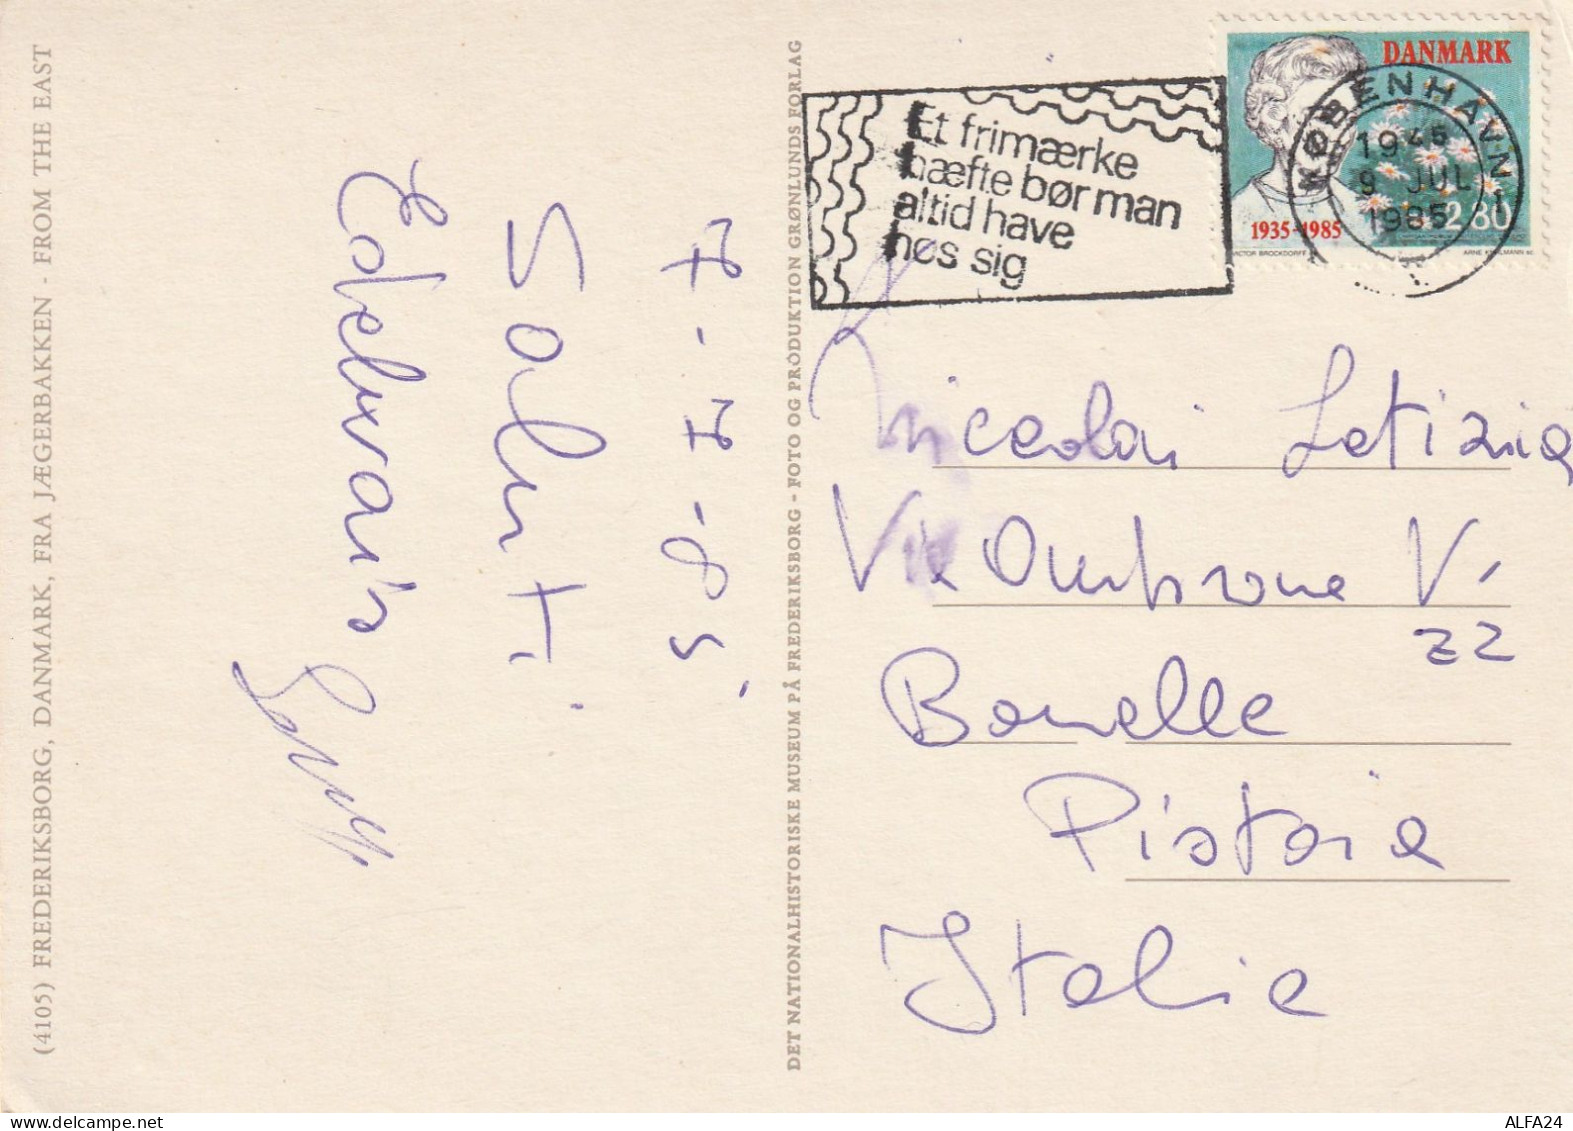 (4105) FREDERIKSBORG, DANMARK, FRA JÆGERBAKKEN - FROM THE EAST
7-7-85
Saluti
DET NATIONALHISTORISKE MUSEUM PÅ FREDERIKSBORG - FOTO OG PRODUKTION GRØNLUNDS FORLAG
Et frimærke
hæfte bør man
altid have
hos sig
DANMARK
1935-1985
2.80
KØBENHAVN
1945
9 JUL
1985
Letizia
Via
22
Bonelle
Pistoia
Italia
ALFA24